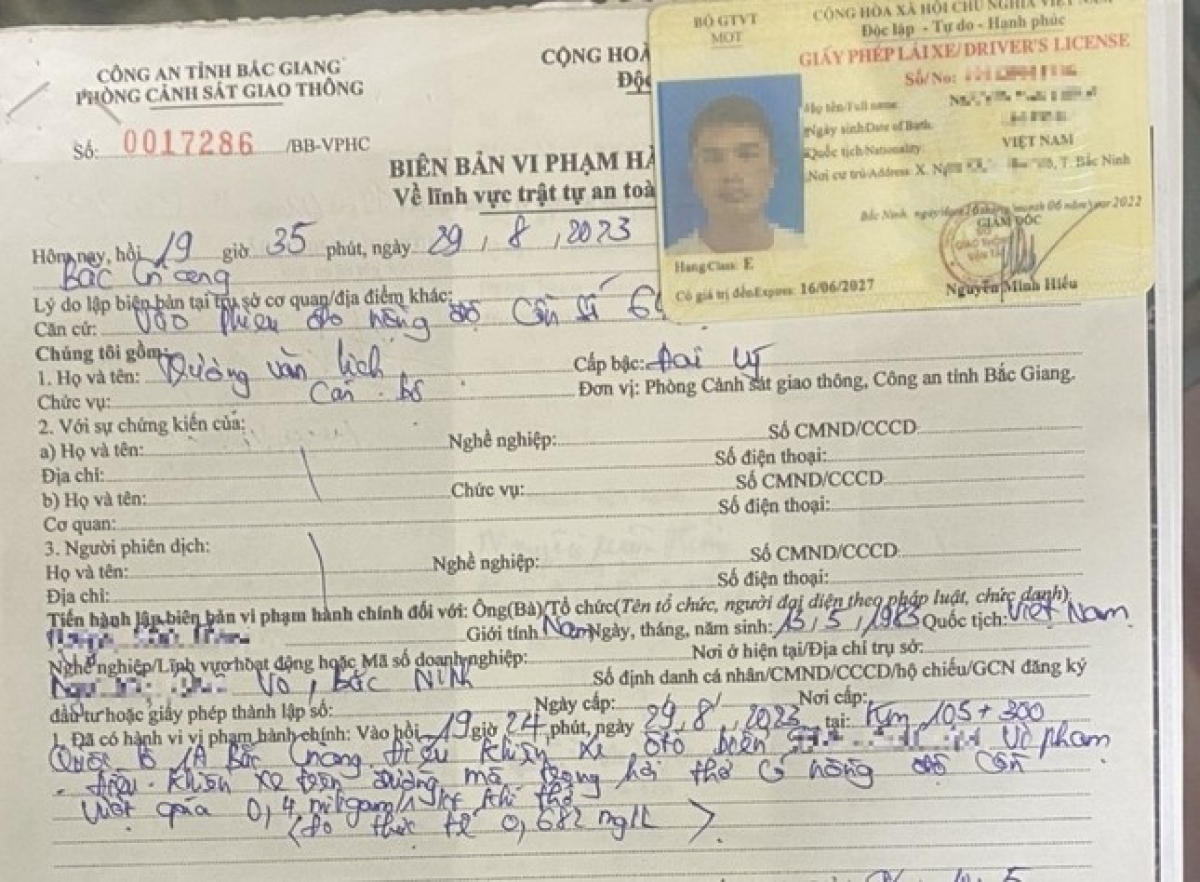 CÔNG AN TỈNH BẮC GIANG
PHÒNG CẢNH SÁT GIAO THÔNG
Số: 0017286 /BB-VPHC
CỘNG HOÀ
Độc
BIÊN BẢN VI PHẠM HÀ
Về lĩnh vực trật tự an toà
BỘ GTVT
MOT
CỘNG HÒA XÃ HỘI CHỦ NGHĨA VIỆT NAM
Độc lập - Tự do - Hạnh phúc
GIẤY PHÉP LÁI XE/DRIVER'S LICENSE
Số/No:
Họ tên/Full name:
Ngày sinh/Date of Birth:
Quốc tịch/Nationality: VIỆT NAM
Nơi cư trú/Address: X. T. Bắc Ninh
Bắc Ninh, ngày/date 16 tháng/month 06 năm/year 2022
GIÁM ĐỐC
Hạng/Class: E
Có giá trị đến/Expires: 16/06/2027
Nguyễn Minh Hiếu
Hôm nay, hồi 19 giờ 35 phút, ngày 29, 8, 2023
Bắc Giang
Lý do lập biên bản tại trụ sở cơ quan/địa điểm khác:
Căn cứ: Vào phiếu đo nồng độ cồn số 6
Chúng tôi gồm:
1. Họ và tên: Dương văn lịch Cấp bậc: Đại uý
Chức vụ: Cán bộ Đơn vị: Phòng Cảnh sát giao thông, Công an tỉnh Bắc Giang.
2. Với sự chứng kiến của:
a) Họ và tên: Nghề nghiệp: Số CMND/CCCD
Địa chỉ: Số điện thoại:
b) Họ và tên: Chức vụ: Số CMND/CCCD
Cơ quan: Số điện thoại:
3. Người phiên dịch:
Họ và tên: Nghề nghiệp: Số CMND/CCCD
Địa chỉ: Số điện thoại:
Tiến hành lập biên bản vi phạm hành chính đối với: Ông(Bà)/Tổ chức(Tên tổ chức, người đại diện theo pháp luật, chức danh)
Giới tính Nam Ngày, tháng, năm sinh: 15, 5, 1983 Quốc tịch: Việt Nam
Nghề nghiệp/Lĩnh vực hoạt động hoặc Mã số doanh nghiệp: Nơi ở hiện tại/Địa chỉ trụ sở:
Võ, Bắc Ninh Số định danh cá nhân/CMND/CCCD/hộ chiếu/GCN đăng ký
đầu tư hoặc giấy phép thành lập số: Ngày cấp: Nơi cấp:
1. Đã có hành vi vi phạm hành chính: Vào hồi 19 giờ 24 phút, ngày 29, 8, 2023 tại: Km 105+300
Quốc lộ 1A Bắc Giang điều khiển xe ôtô biển Vi phạm
- điều khiển xe trên đường mà trong hơi thở có nồng độ cồn
vượt quá 0,4 miligam/1 lít khí thở
(đo thực tế 0,682 mg/l)